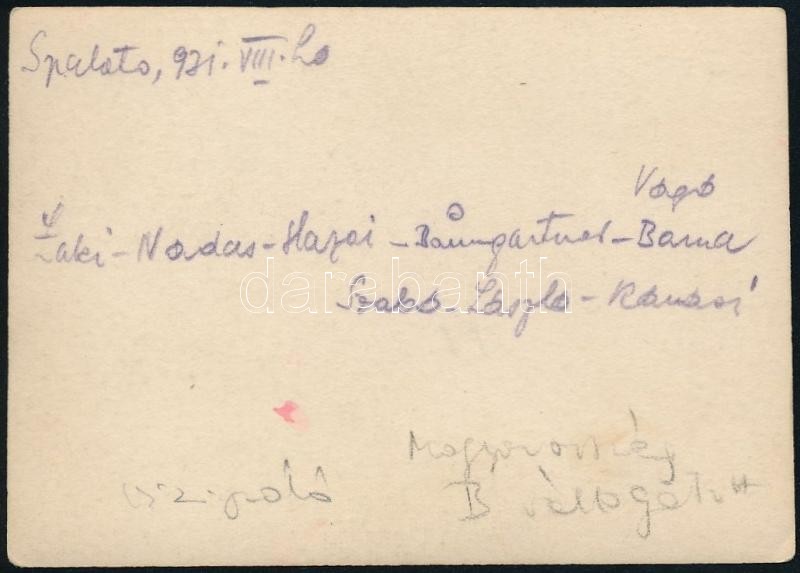 Spalato, 931. VIII. hó
Vágó
Laki - Nádas - Hazai - Baumgartner - Barna
Szabó - László - Kánási
Magyarország
vizipoló B válogatott
darabanth.com